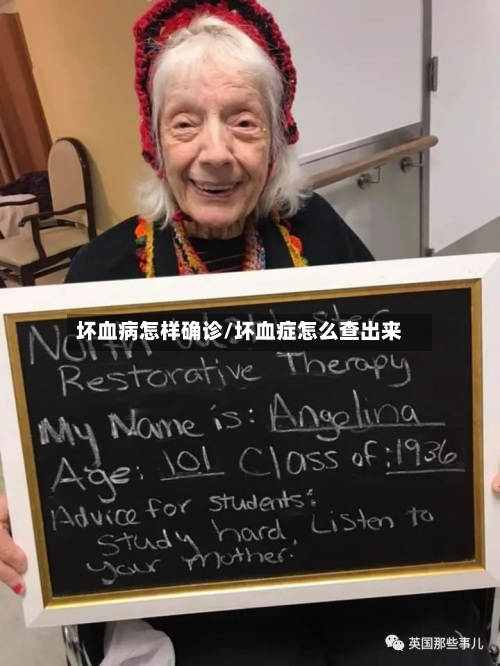 坏血病怎样确诊/坏血症怎么查出来
North
Restorative Therapy
My Name is: Angelina
Age: 101 Class of: 1936
Advice for students:
Study hard, Listen to
your mother.
英国那些事儿